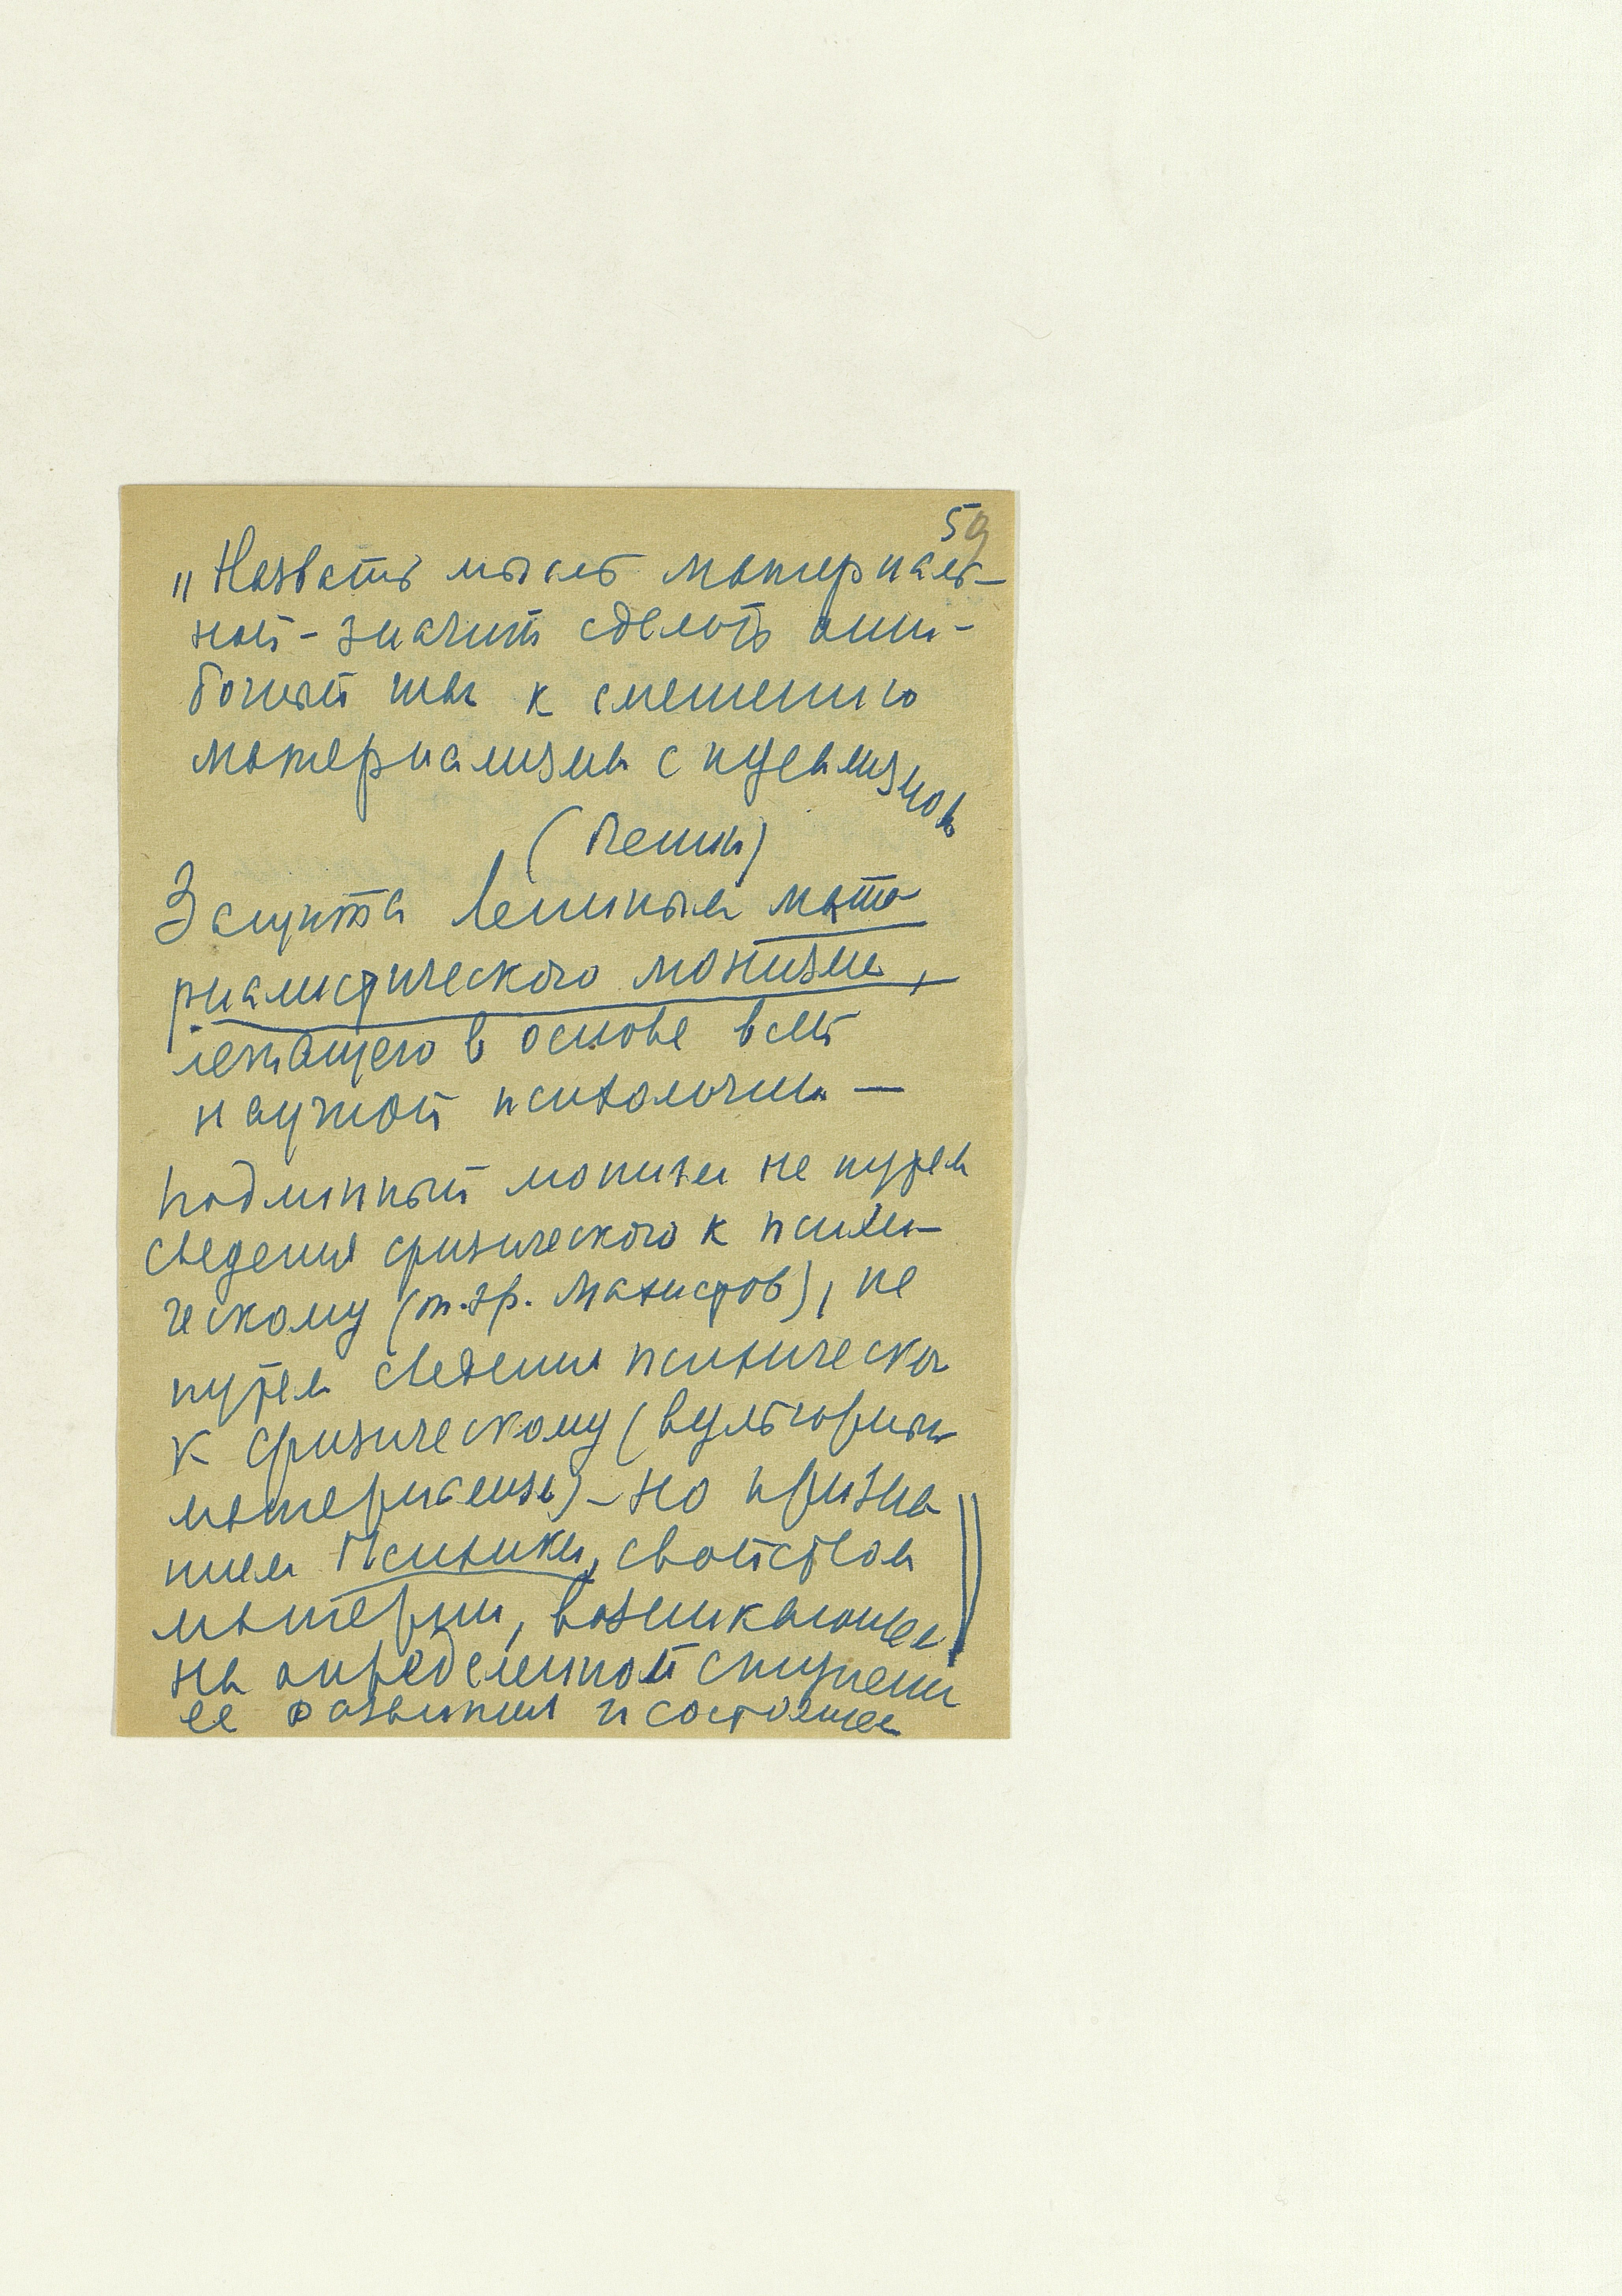 59
„Назвать мысль материаль-
ной - значит сделать оши-
бочный шаг к смешению
материализма с идеализмом
(Ленин)
Защита Лениным мате
риалистического монизма,
лежащего в основе всей
научной психологии —
Подлинный монизм не путем
сведения физического к психи-
ческому (т.зр. махистов), не
путем сведения психическог
к физическому (вульгарный
материализм) - но призна
нием Психики, свойством
материи, возникающее
на определенной ступени
ее развития и состоящее